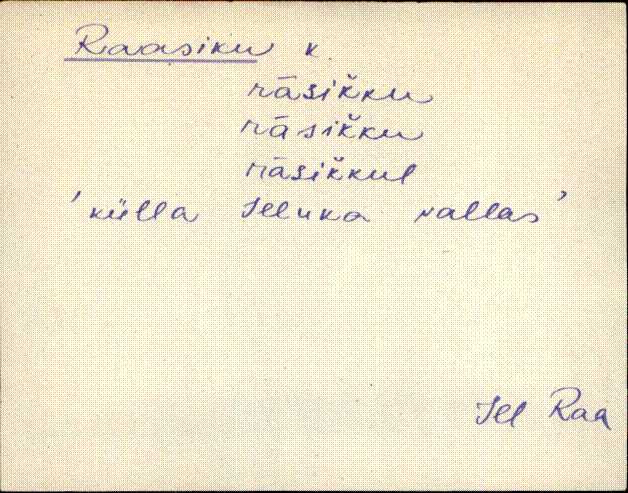 Raasiku k.
rāsik̆ku
rāsik̆ku
rāsik̆kul
'külla Illuka vallas'
Ill Raa